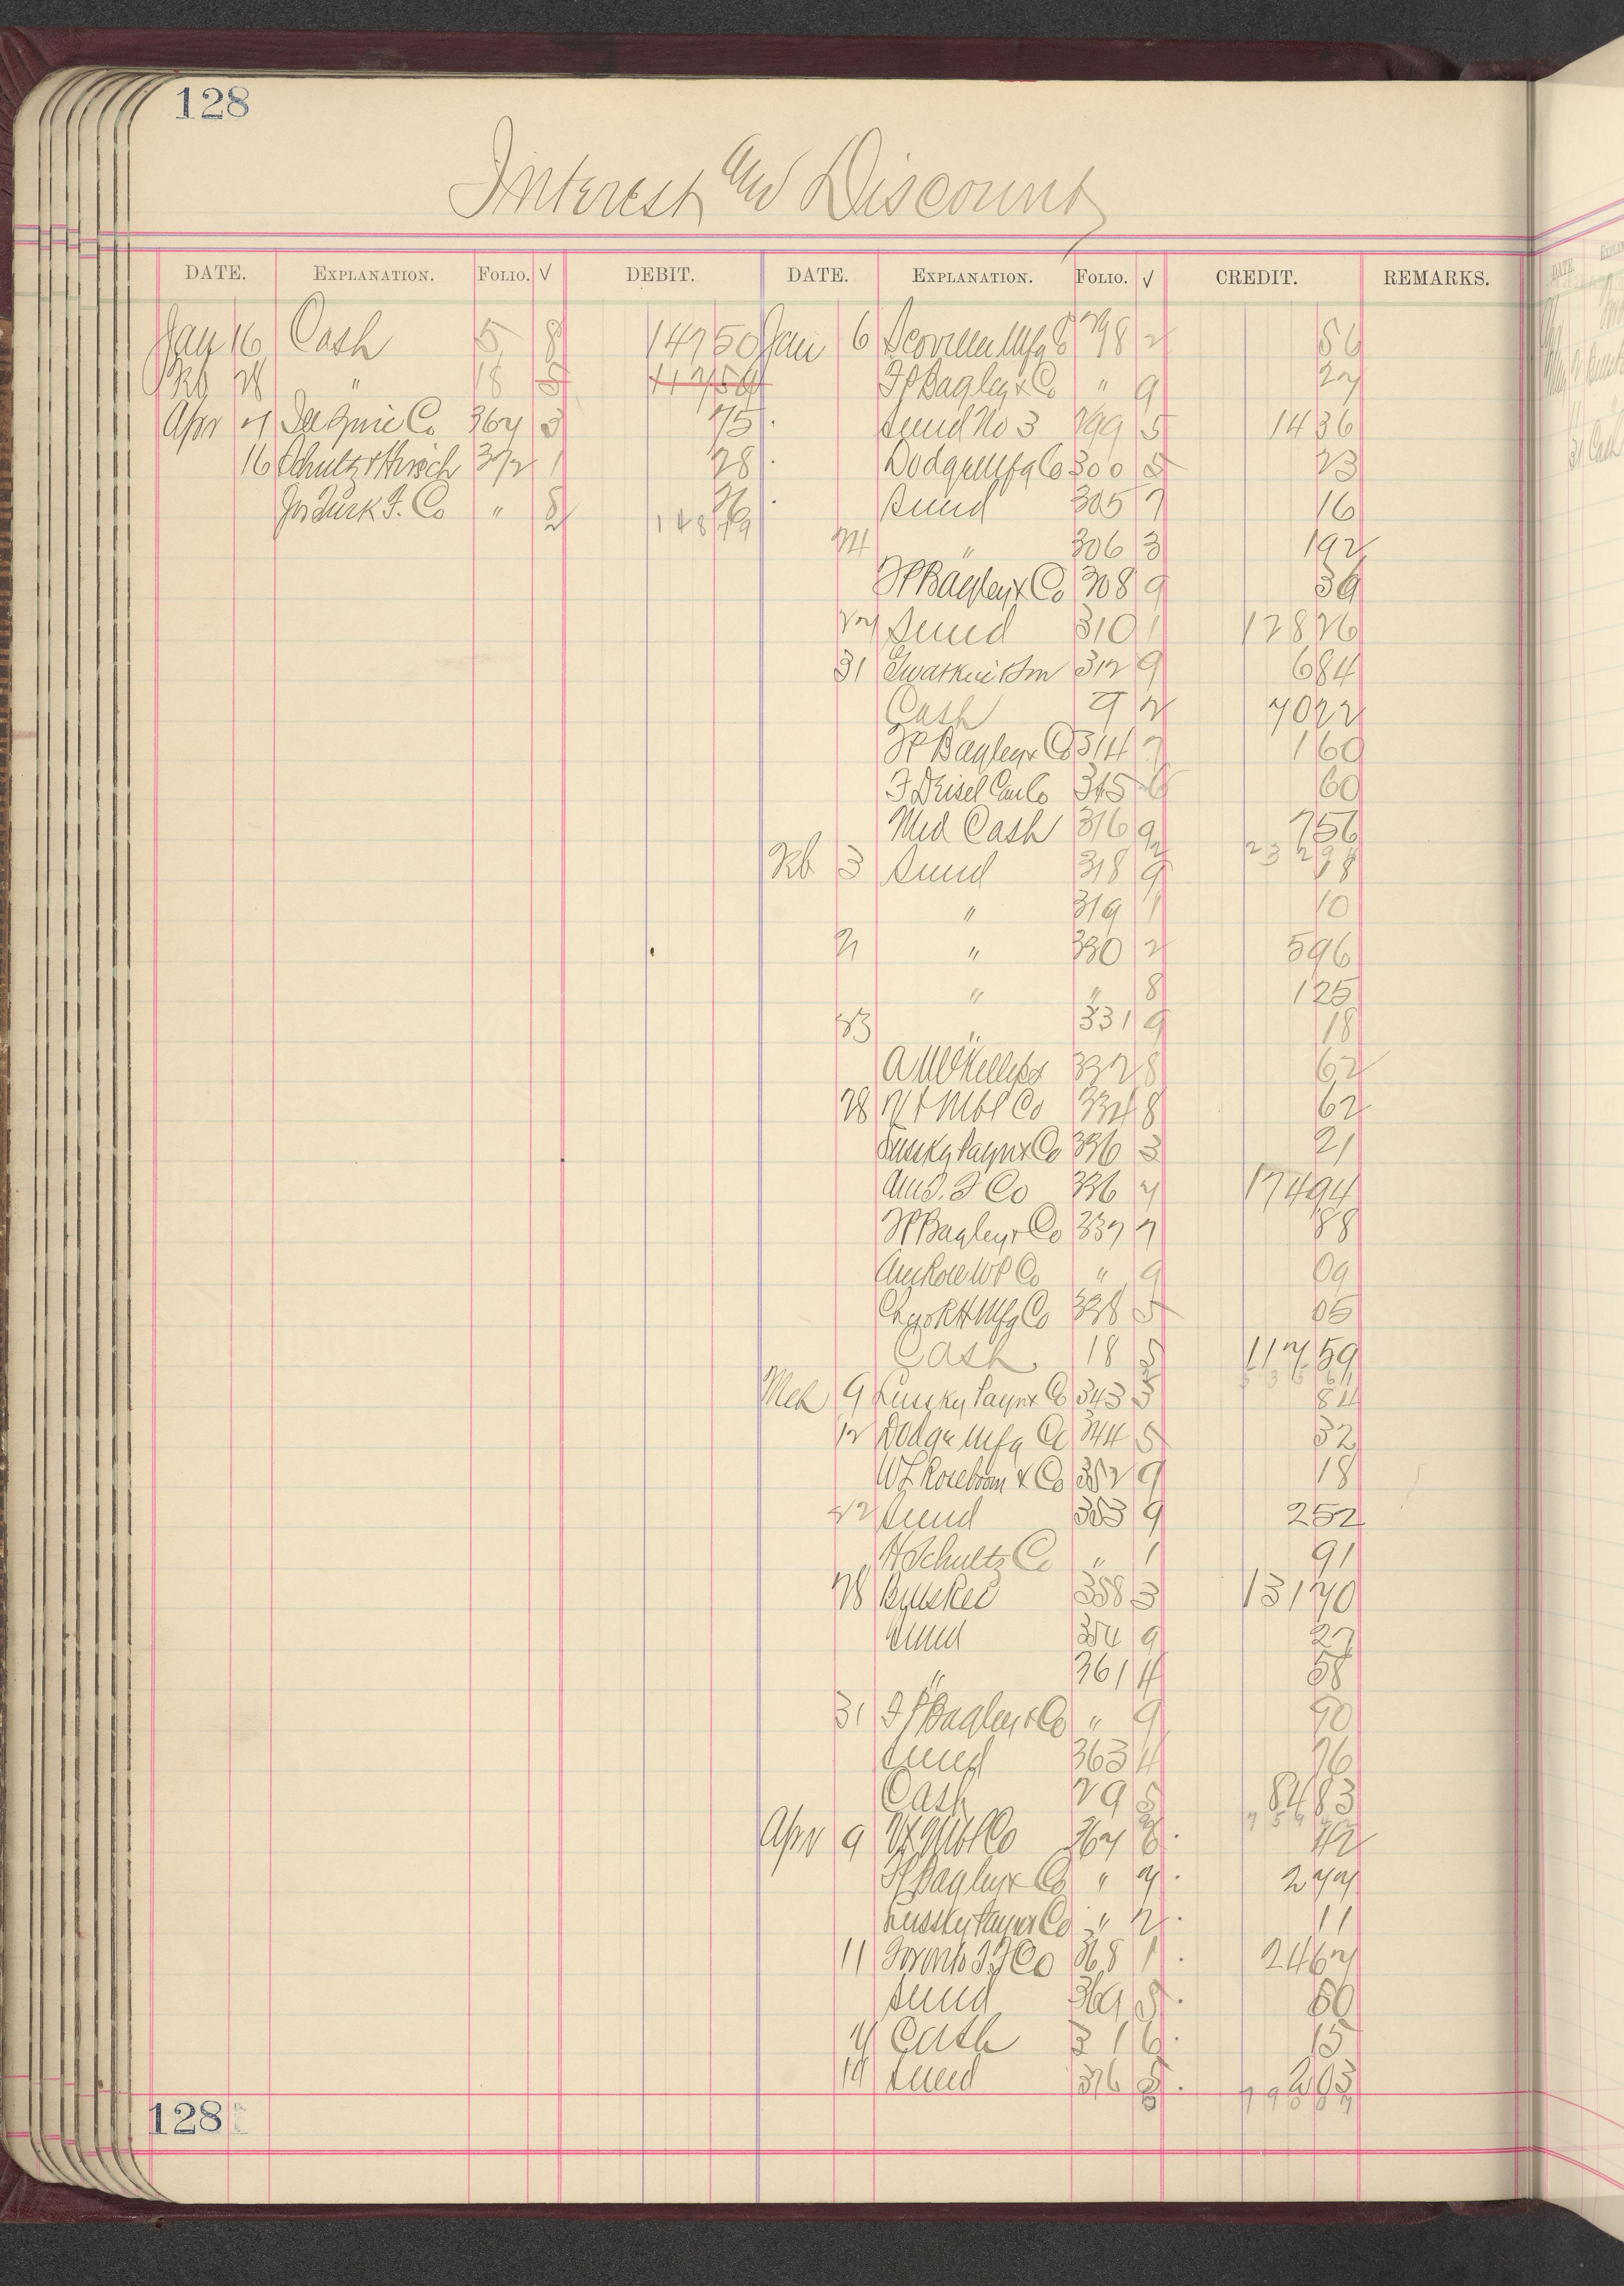 128
Interest and Discount
DATE. EXPLANATION. FOLIO. √ DEBIT. DATE. EXPLANATION. FOLIO. √ CREDIT. REMARKS.
Jan 16 Cash 5 8 147 50 Jan 6 Scoville Mfg Co 298 2 56
Feb 28 " 18 5 117 59 F P Bagley & Co " 9 27
Apr 9 Ill Zinc Co 367 3 75 Sund No 3 299 5 14 36
16 Schultz & Hirsch 372 1 28 Dodge Mfg Co 300 5 23
" 8 26 Sund 305 7 16
148 79
24 " 306 3 1 92
F P Bagley & Co 308 9 39
27 Sund 310 1 128 26
31 Gwatkin & Son 312 9 6 84
Cash 9 2 70 22
F P Bagley & Co 314 7 1 60
315 6 60
Md Cash 316 9 7 56
Feb 3 Sund 318 9 18
" 319 1 10
21 " 330 2 5 96
" " 8 1 25
23 " 331 9 18
332 8 62
28 N Y Mbl Co 334 8 62
Lussky Payn & Co 336 3 21
Am T. F Co 336 7 174 94
F P Bagley & Co 337 7 88
" 9 09
Mfg Co 338 5 05
Cash 18 5 117 59
Mch 9 Lussky Payn & Co 343 3 84
12 Dodge Mfg Co 344 5 32
W L Roseboom & Co 352 9 18
22 Sund 353 9 2 52
H Schultz Co " 1 91
28 Bills Rec 358 3 131 70
Sund 354 9 27
" 361 4 58
31 F P Bagley & Co " 9 90
Sund 363 4 76
Cash 29 5 84 83
Apr 9 Vt Mbl Co 367 8 42
F P Bagley & Co " 7 2 77
Lussky Payn & Co " 2 11
11 Toronto S F Co 368 1 24 67
Sund 369 5 60
Cash 31 6 15
19 Sund 376 8 2 03
128